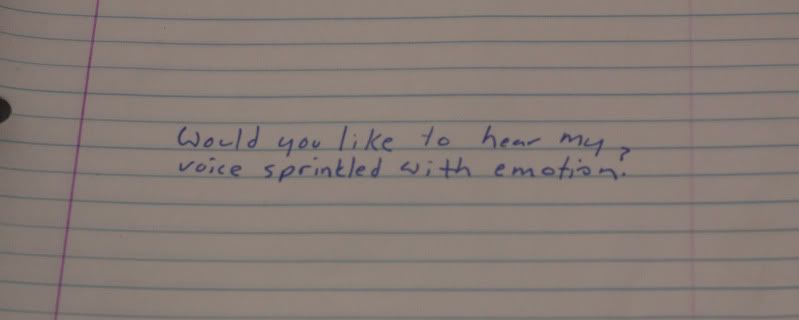 Would you like to hear my
voice sprinkled with emotion?